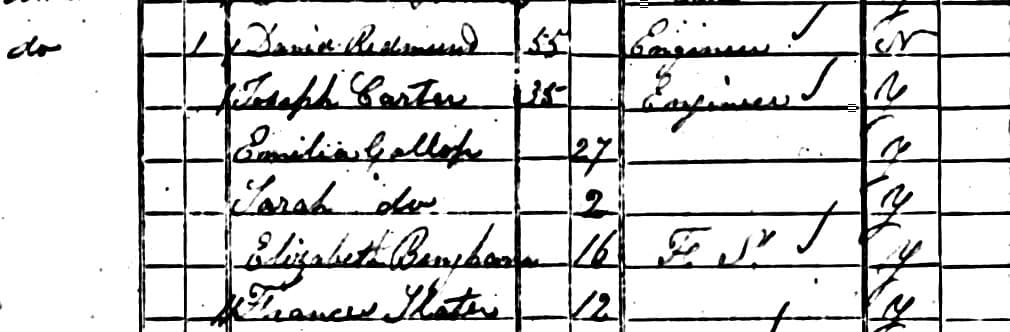 do 1 David Redmund 55 Engineer N
Joseph Carter 35 Engineer Y
Emilia Gallop 27 Y
Sarah do 2 Y
Elizabeth 16 F. S. Y
Frances Slater 12 Y